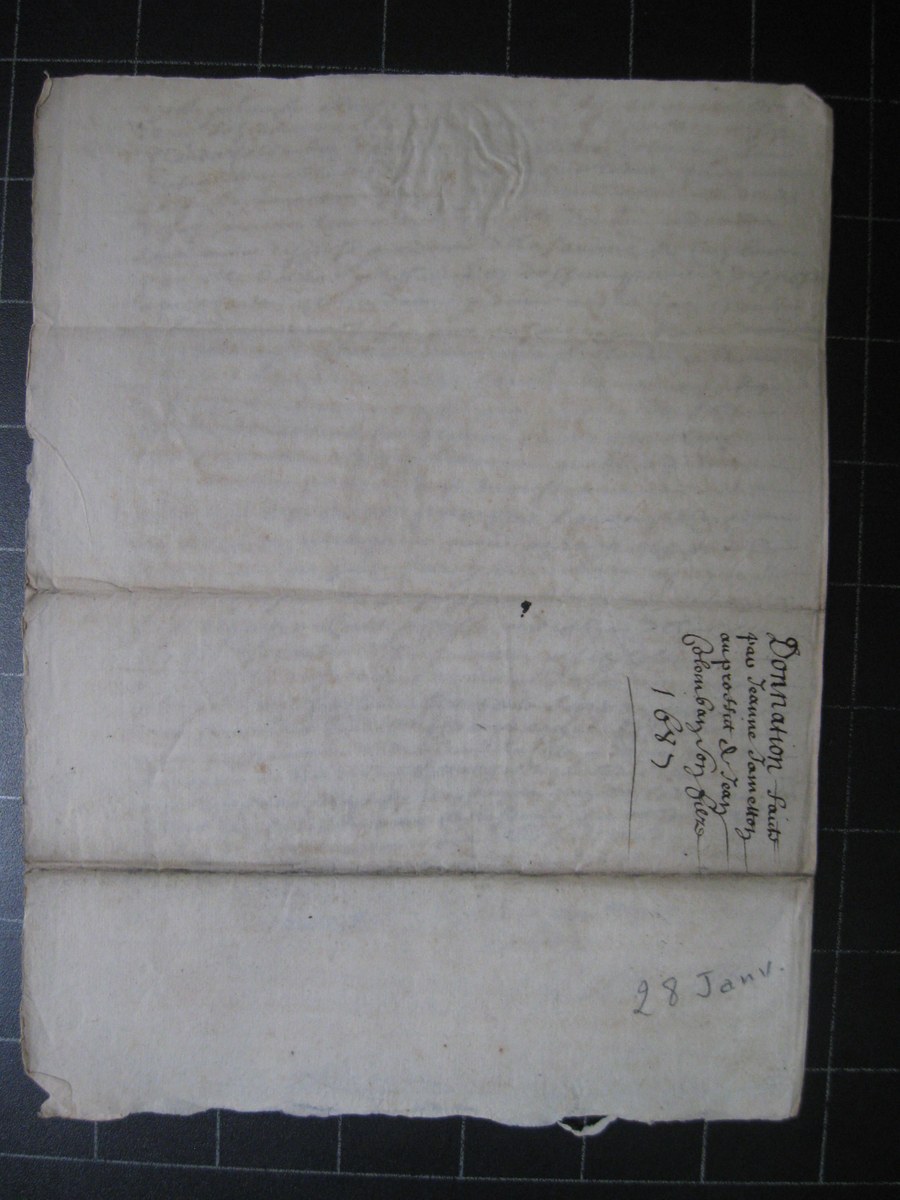 Donnation faitte
par Jeanne Jametton
au proffict de Jean
Colomban son filz
1687
28 Janv.